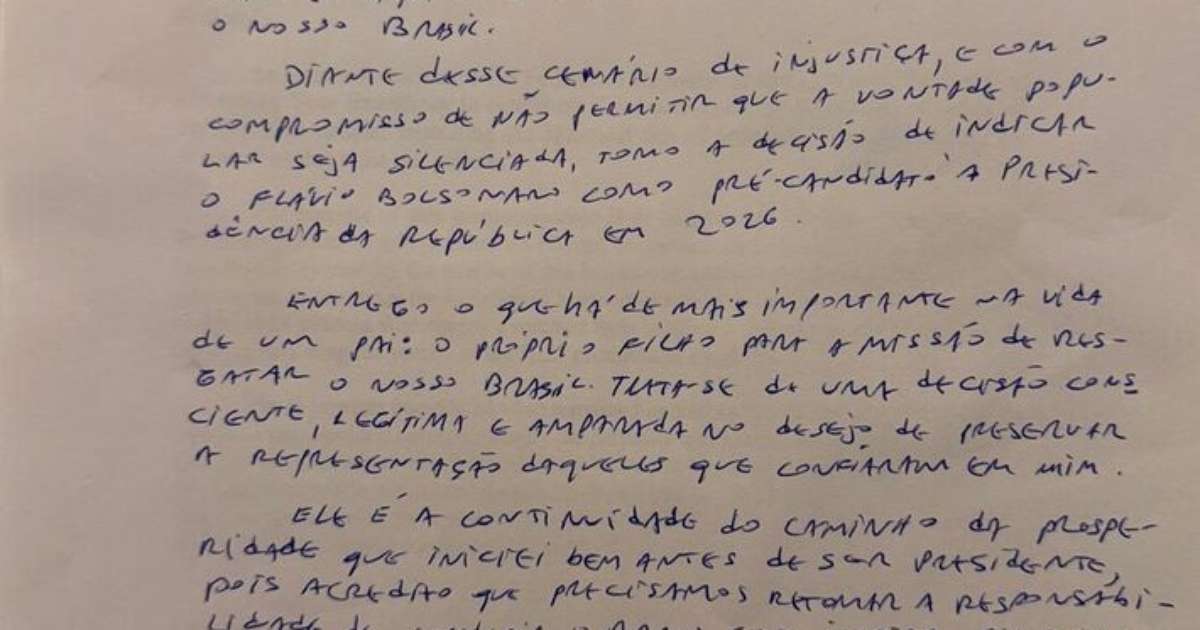 O NOSSO BRASIL.
DIANTE DESSE CENÁRIO DE INJUSTIÇA, E COM O
COMPROMISSO DE NÃO PERMITIR QUE A VONTADE POPU-
LAR SEJA SILENCIADA, TOMO A DECISÃO DE INDICAR
O FLÁVIO BOLSONARO COMO PRÉ-CANDIDATO À PRESI-
DÊNCIA DA REPÚBLICA EM 2026.
ENTREGO O QUE HÁ DE MAIS IMPORTANTE NA VIDA
DE UM PAI: O PRÓPRIO FILHO PARA A MISSÃO DE RES-
GATAR O NOSSO BRASIL. TRATA-SE DE UMA DECISÃO CONS
CIENTE, LEGÍTIMA E AMPARADA NO DESEJO DE PRESERVAR
A REPRESENTAÇÃO DAQUELES QUE CONFIARAM EM MIM.
ELE É A CONTINUIDADE DO CAMINHO DA PROSPE-
RIDADE QUE INICIEI BEM ANTES DE SER PRESIDENTE,
POIS ACREDITO QUE PRECISAMOS RETOMAR A RESPONSABI-
LIDADE DE